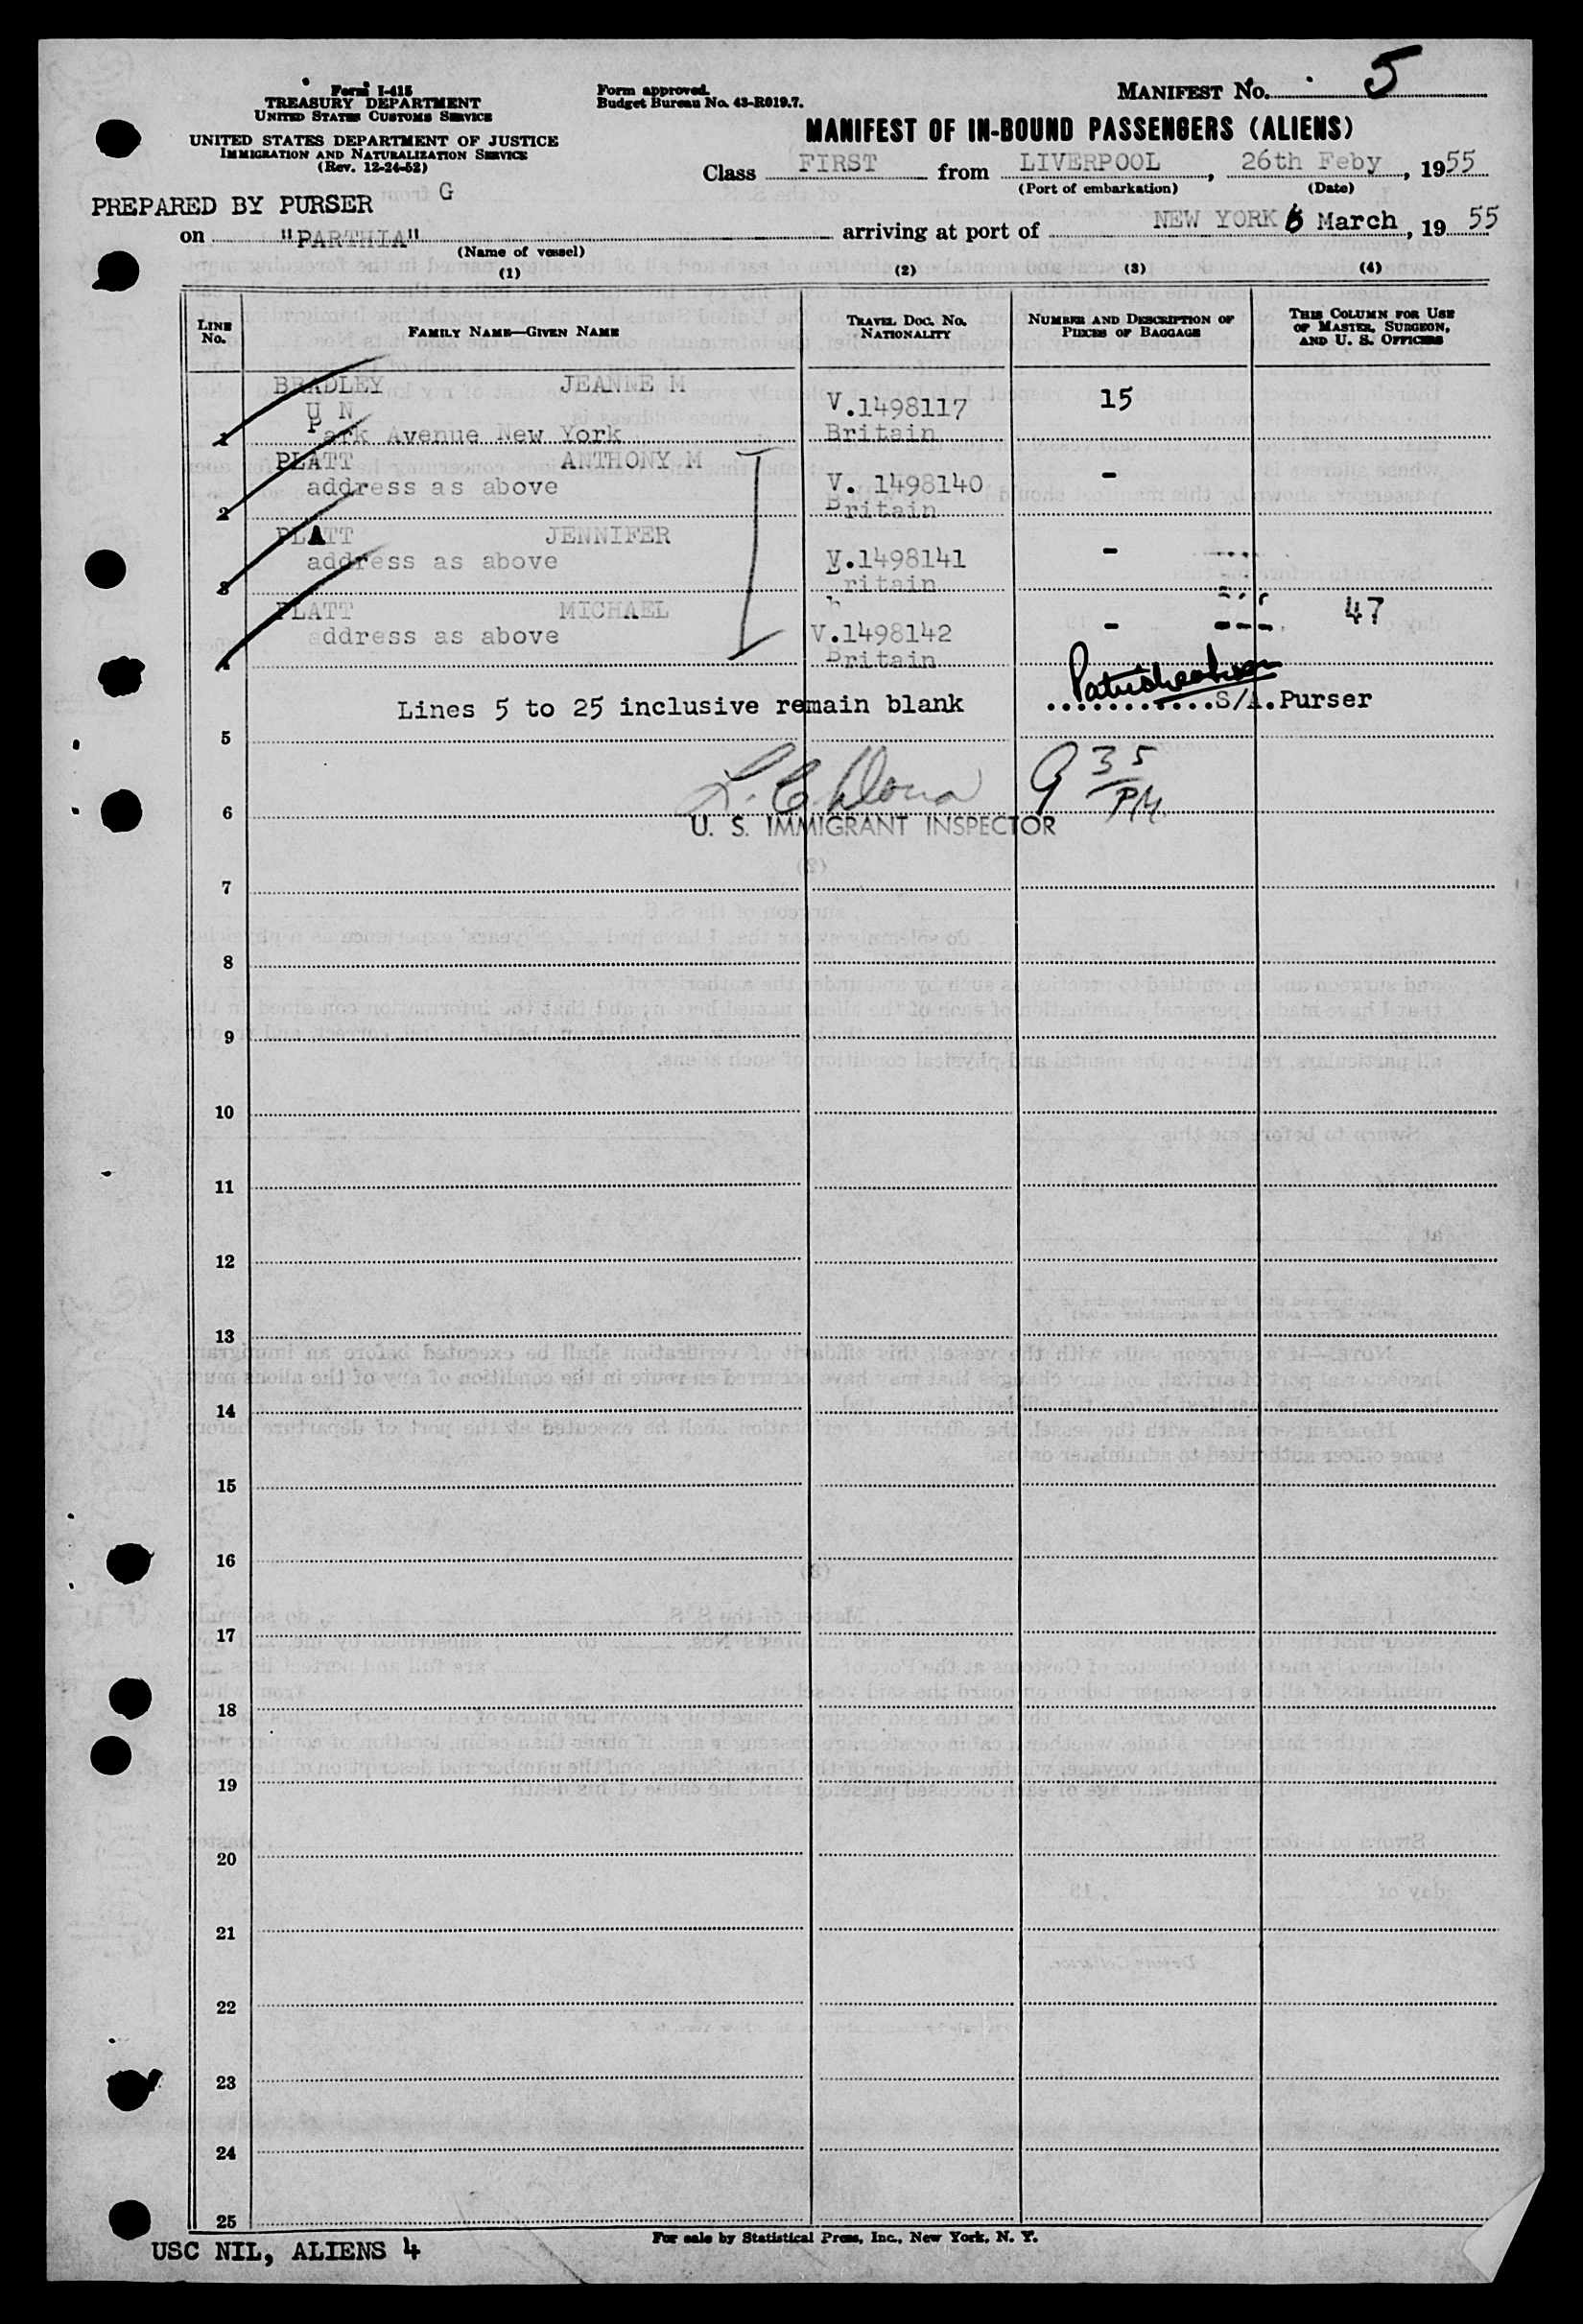 MANIFEST No. 5
Form I-415
TREASURY DEPARTMENT
UNITED STATES CUSTOMS SERVICE
UNITED STATES DEPARTMENT OF JUSTICE
IMMIGRATION AND NATURALIZATION SERVICE
(Rev. 12-24-52)
Form approved.
Budget Bureau No. 43-R019.7.
MANIFEST OF IN-BOUND PASSENGERS (ALIENS)
Class FIRST from LIVERPOOL, 26th Feby, 1955
(Port of embarkation) (Date)
PREPARED BY PURSER G
on "PARTHIA" arriving at port of NEW YORK 6 March, 19 55
(Name of vessel)
(1) (2) (3) (4)
LINE No. FAMILY NAME—GIVEN NAME TRAVEL DOC. NO. NATIONALITY NUMBER AND DESCRIPTION OF PIECES OF BAGGAGE THIS COLUMN FOR USE OF MASTER, SURGEON, AND U. S. OFFICERS
BRADLEY JEANNE M
U N V.1498117 15
1 Park Avenue New York Britain
PLATT ANTHONY M
address as above V. 1498140 -
2 Britain
PLATT JENNIFER
address as above V.1498141 -
3 ritain
PLATT MICHAEL 47
address as above V.1498142 - ---
4 Britain
Lines 5 to 25 inclusive remain blank ............S/A.Purser
5
L. C. 9 35 PM
6
U. S. IMMIGRANT INSPECTOR
7
8
9
10
11
12
13
14
15
16
17
18
19
20
21
22
23
24
25
For sale by Statistical Press, Inc., New York, N. Y.
USC NIL, ALIENS 4